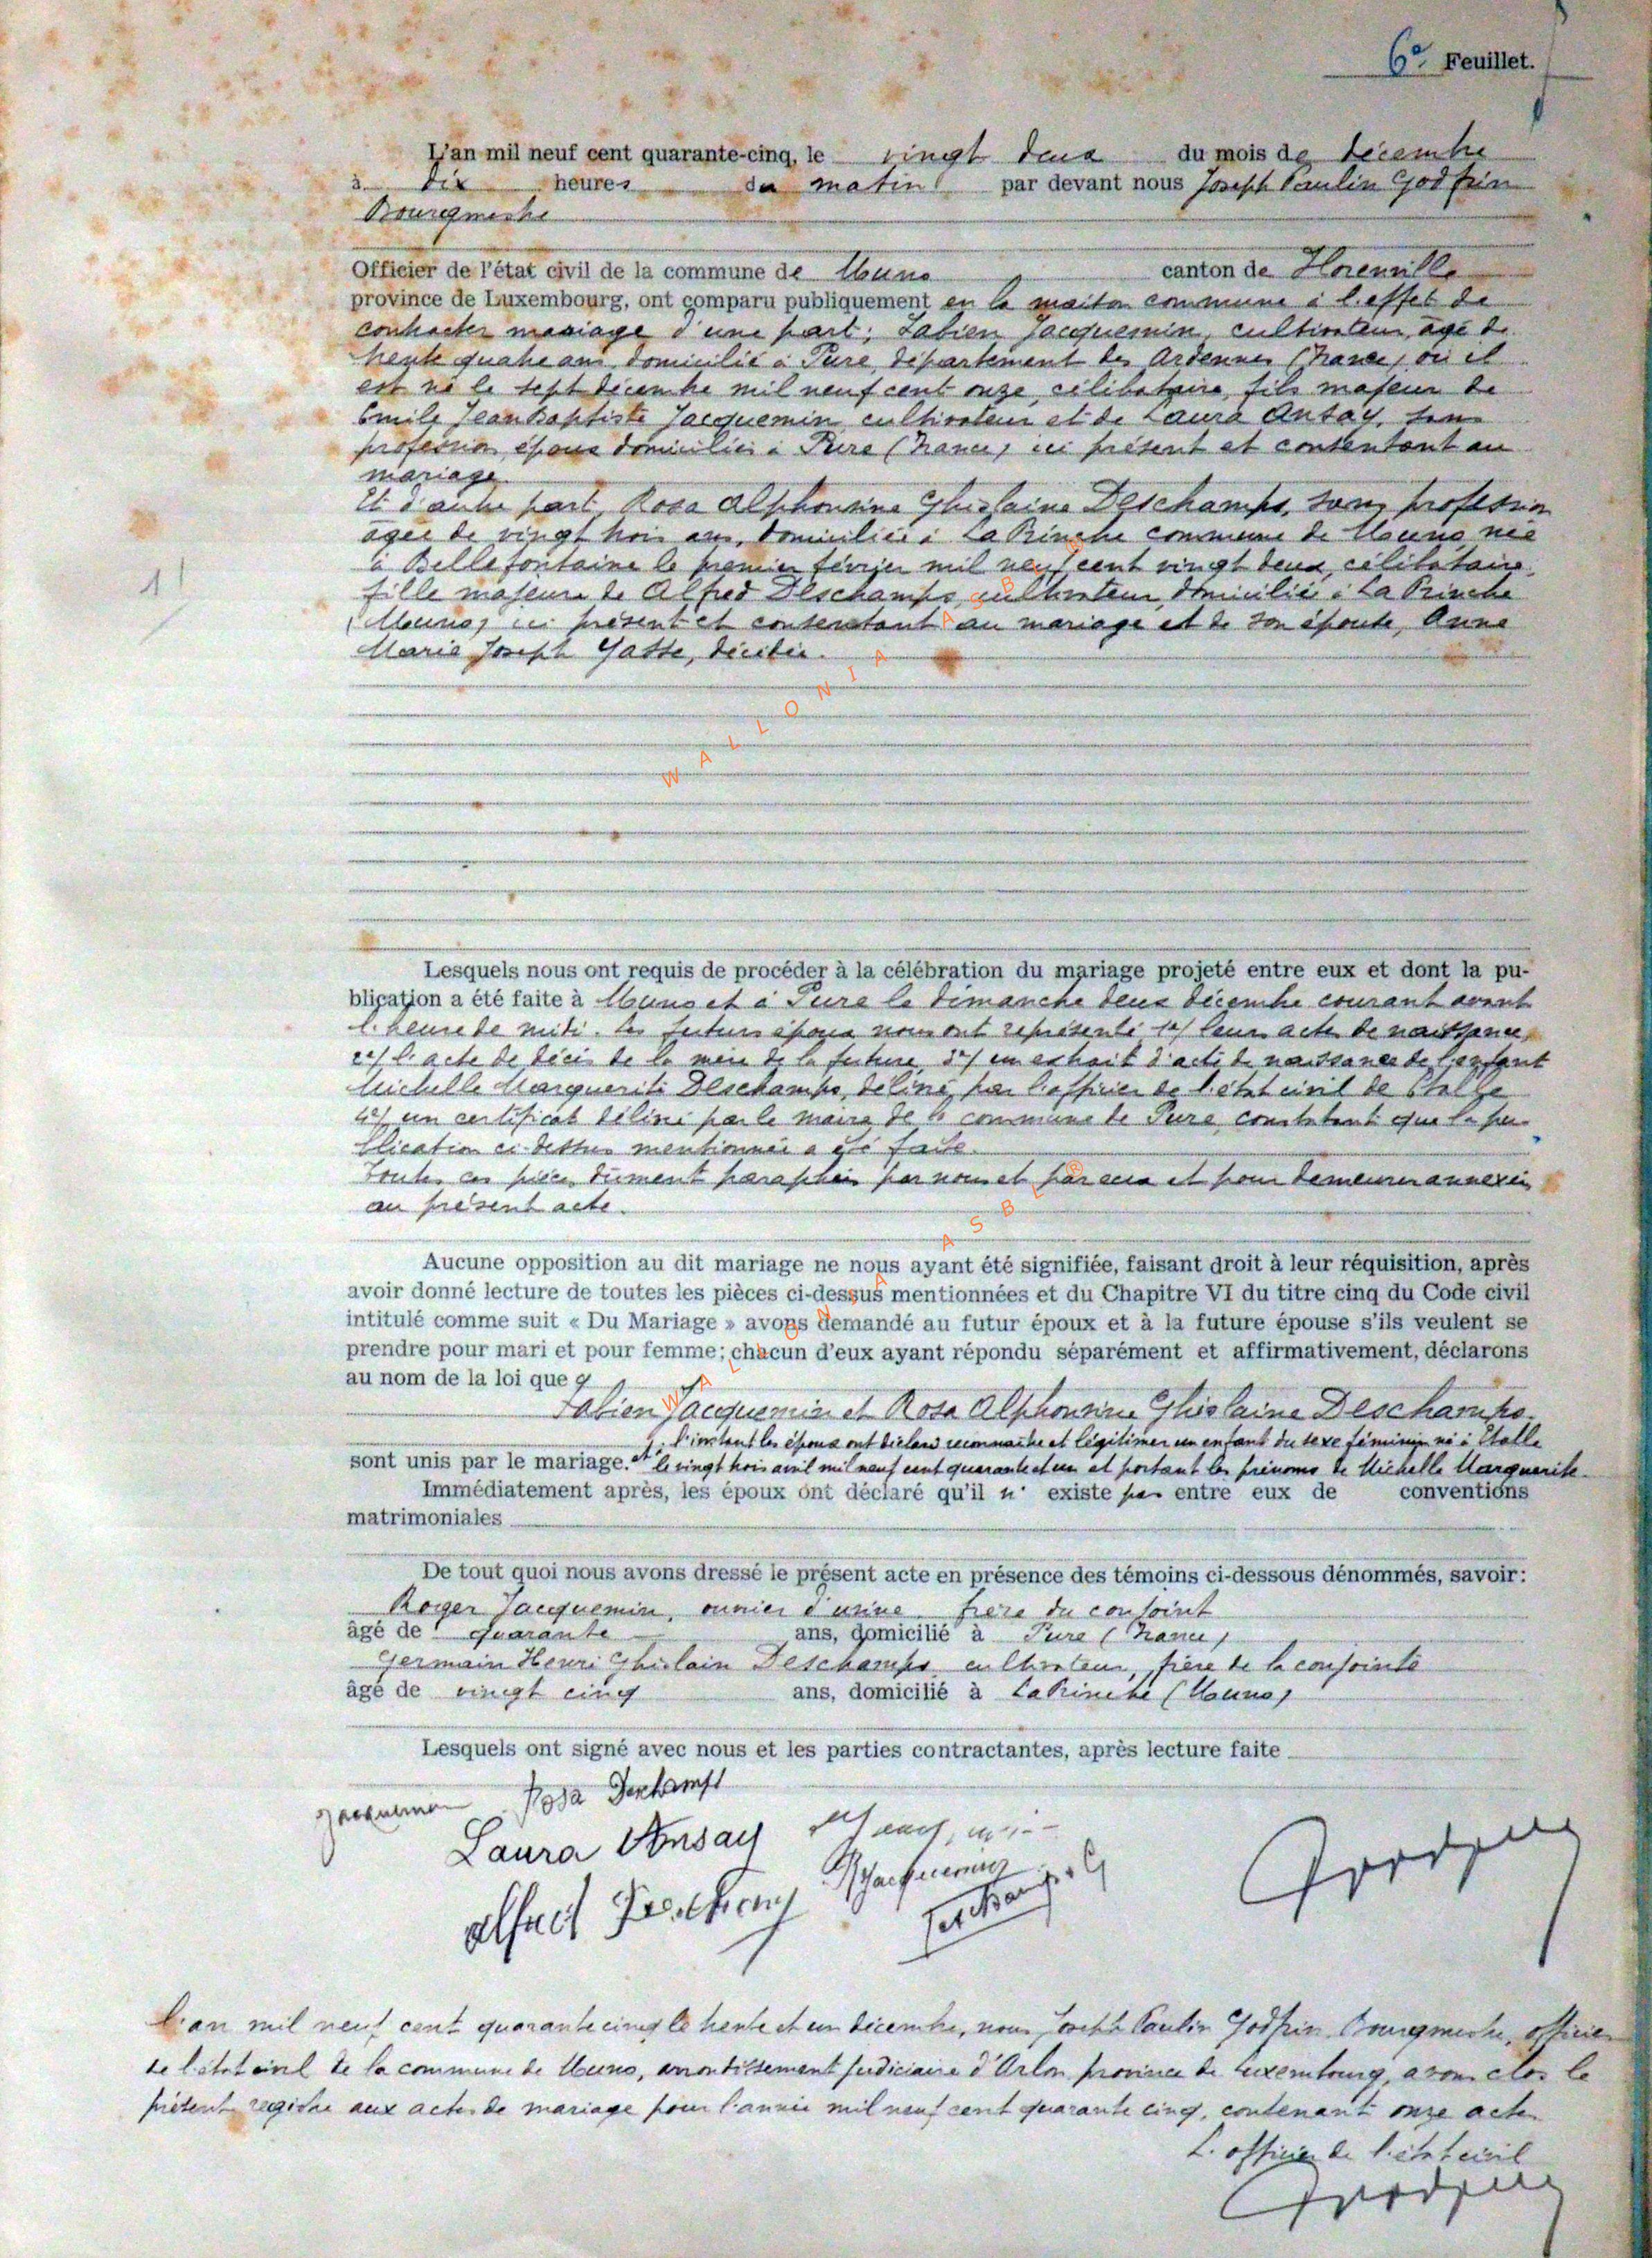 6e Feuillet.
L'an mil neuf cent quarante-cinq, le vingt deux du mois de décembre
à dix heures du matin par devant nous Joseph Paulin Godfrin
Bourgmestre
Officier de l'état civil de la commune de Muno canton de Florenville
province de Luxembourg, ont comparu publiquement en la maison commune à l'effet de
contracter mariage d'une part; Fabien Jacquemin, cultivateur, âgé de
trente quatre ans, domicilié à Pure, département des Ardennes (France) où il
est né le sept décembre mil neuf cent onze, célibataire, fils majeur de
Emile Jean Baptiste Jacquemin cultivateur et de Laura Ansay, sans
profession, époux domiciliés à Pure (France) ici présent et consentant au
mariage
Et d'autre part, Rosa Alphonsine Ghislaine Deschamps, sans profession
âgée de vingt trois ans, domiciliée à La Prinche commune de Muno née
à Bellefontaine le premier février mil neuf cent vingt deux, célibataire,
fille majeure de Alfred Deschamps, cultivateur, domicilié à La Prinche
(Muno) ici présent et consentant au mariage et de son épouse, Anne
Marie Joseph Gatte, décédée.
WALLONIA ASBL
11
Lesquels nous ont requis de procéder à la célébration du mariage projeté entre eux et dont la pu-
blication a été faite à Muno et à Pure le dimanche deux décembre courant avant
l'heure de midi. Les futurs époux nous ont représenté 1°/ leurs actes de naissance,
2°/ l'acte de décès de la mère de la future 3°/ un extrait d'acte de naissance de l'enfant
Michelle Marguerite Deschamps, délivré par l'officier de l'état civil de Etalle
4°/ un certificat délivré par le maire de la commune de Pure constatant que la pu-
blication ci-dessus mentionnée a été faite.
Toutes ces pièces dûment paraphées par nous et par eux et pour demeurer annexées
au présent acte.
Aucune opposition au dit mariage ne nous ayant été signifiée, faisant droit à leur réquisition, après
avoir donné lecture de toutes les pièces ci-dessus mentionnées et du Chapitre VI du titre cinq du Code civil
intitulé comme suit « Du Mariage » avons demandé au futur époux et à la future épouse s'ils veulent se
prendre pour mari et pour femme; chacun d'eux ayant répondu séparément et affirmativement, déclarons
au nom de la loi que
Fabien Jacquemin et Rosa Alphonsine Ghislaine Deschamps.
à l'instant les époux ont déclaré reconnaître et légitimer un enfant du sexe féminin né à Etalle
sont unis par le mariage. et le vingt trois avril mil neuf cent quarante et un et portant les prénoms de Michelle Marguerite.
Immédiatement après, les époux ont déclaré qu'il n' existe pas entre eux de conventions
matrimoniales
De tout quoi nous avons dressé le présent acte en présence des témoins ci-dessous dénommés, savoir:
Roger Jacquemin, ouvrier d'usine, frère du conjoint
âgé de quarante ans, domicilié à Pure (France)
Germain Henri Ghislain Deschamps, cultivateur, frère de la conjointe
âgé de vingt cinq ans, domicilié à La Prinche (Muno)
Lesquels ont signé avec nous et les parties contractantes, après lecture faite
Jacquemin Rosa Deschamps
Laura Ansay
R Jacquemin
Alfred Deschamps Deschamps G
Godfrin
L'an mil neuf cent quarante cinq le trente et un décembre, nous Joseph Paulin Godfrin, Bourgmestre, officier
de l'état civil de la commune de Muno, arrondissement judiciaire d'Arlon province de Luxembourg, avons clos le
présent registre aux actes de mariage pour l'année mil neuf cent quarante cinq, contenant onze actes
L'officier de l'état civil
Godfrin